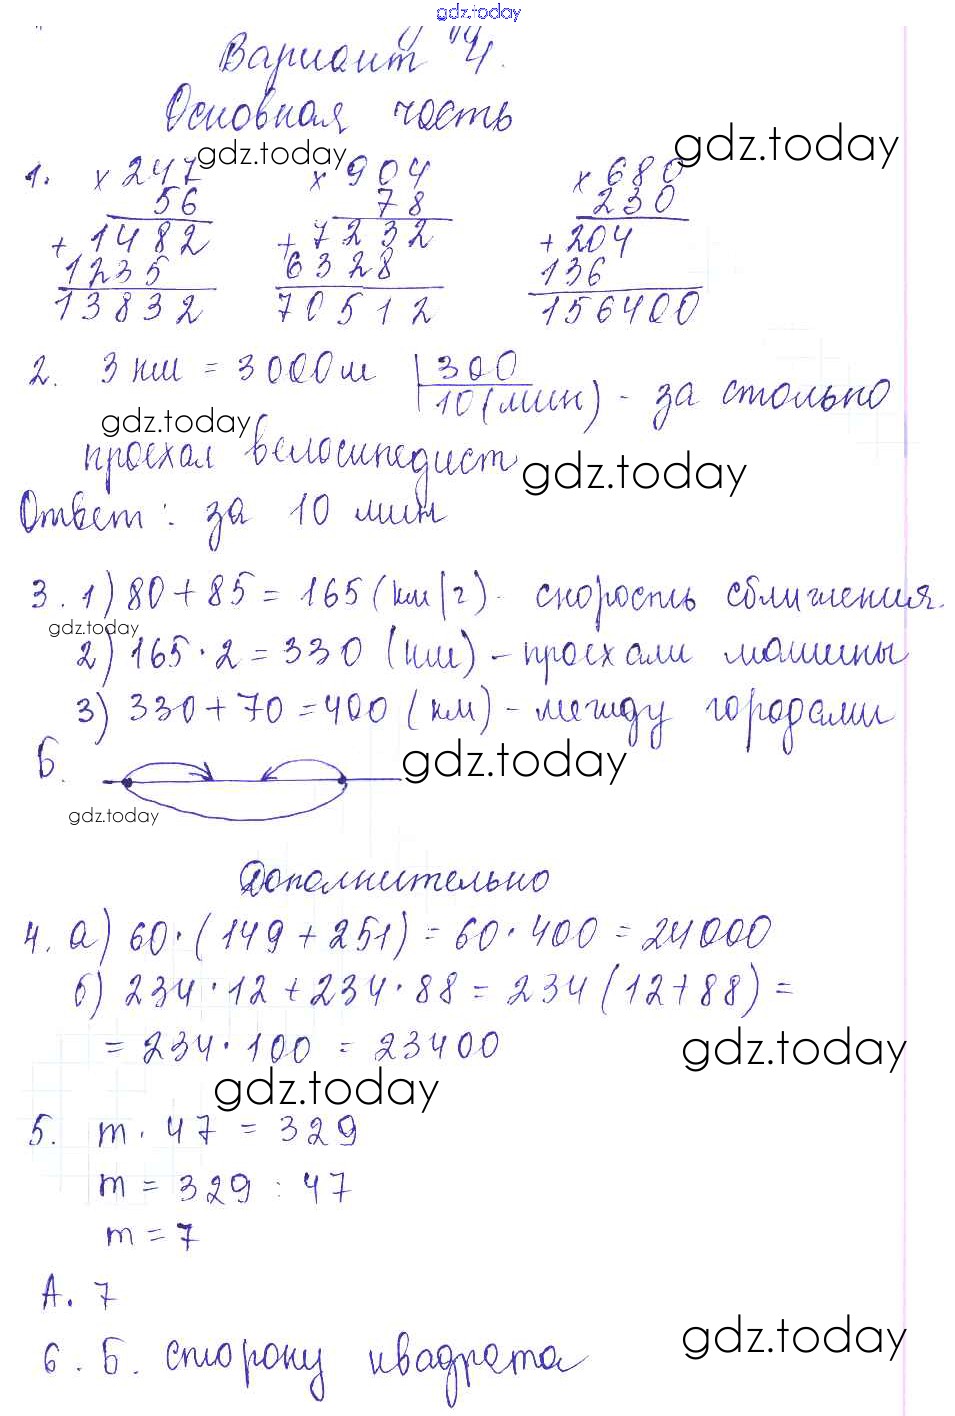 gdz.today
Вариант 4.
Основная часть
gdz.today
gdz.today
1. × 247 × 904 × 680
56 78 230
+ 1482 + 7232 + 204
1235 6328 136
13832 70512 156400
2. 3 км = 3000 м | 300
10 (мин) - за столько
gdz.today
проехал велосипедист
gdz.today
Ответ: за 10 мин
3. 1) 80 + 85 = 165 (км/г) - скорость сближения.
gdz.today
2) 165 · 2 = 330 (км) - проехали машины
3) 330 + 70 = 400 (км) - между городами
Б.
gdz.today
gdz.today
Дополнительно
4. а) 60 · (149 + 251) = 60 · 400 = 24000
б) 234 · 12 + 234 · 88 = 234 (12 + 88) =
= 234 · 100 = 23400
gdz.today
gdz.today
5. m · 47 = 329
m = 329 : 47
m = 7
А. 7
gdz.today
6. Б. сторону квадрата